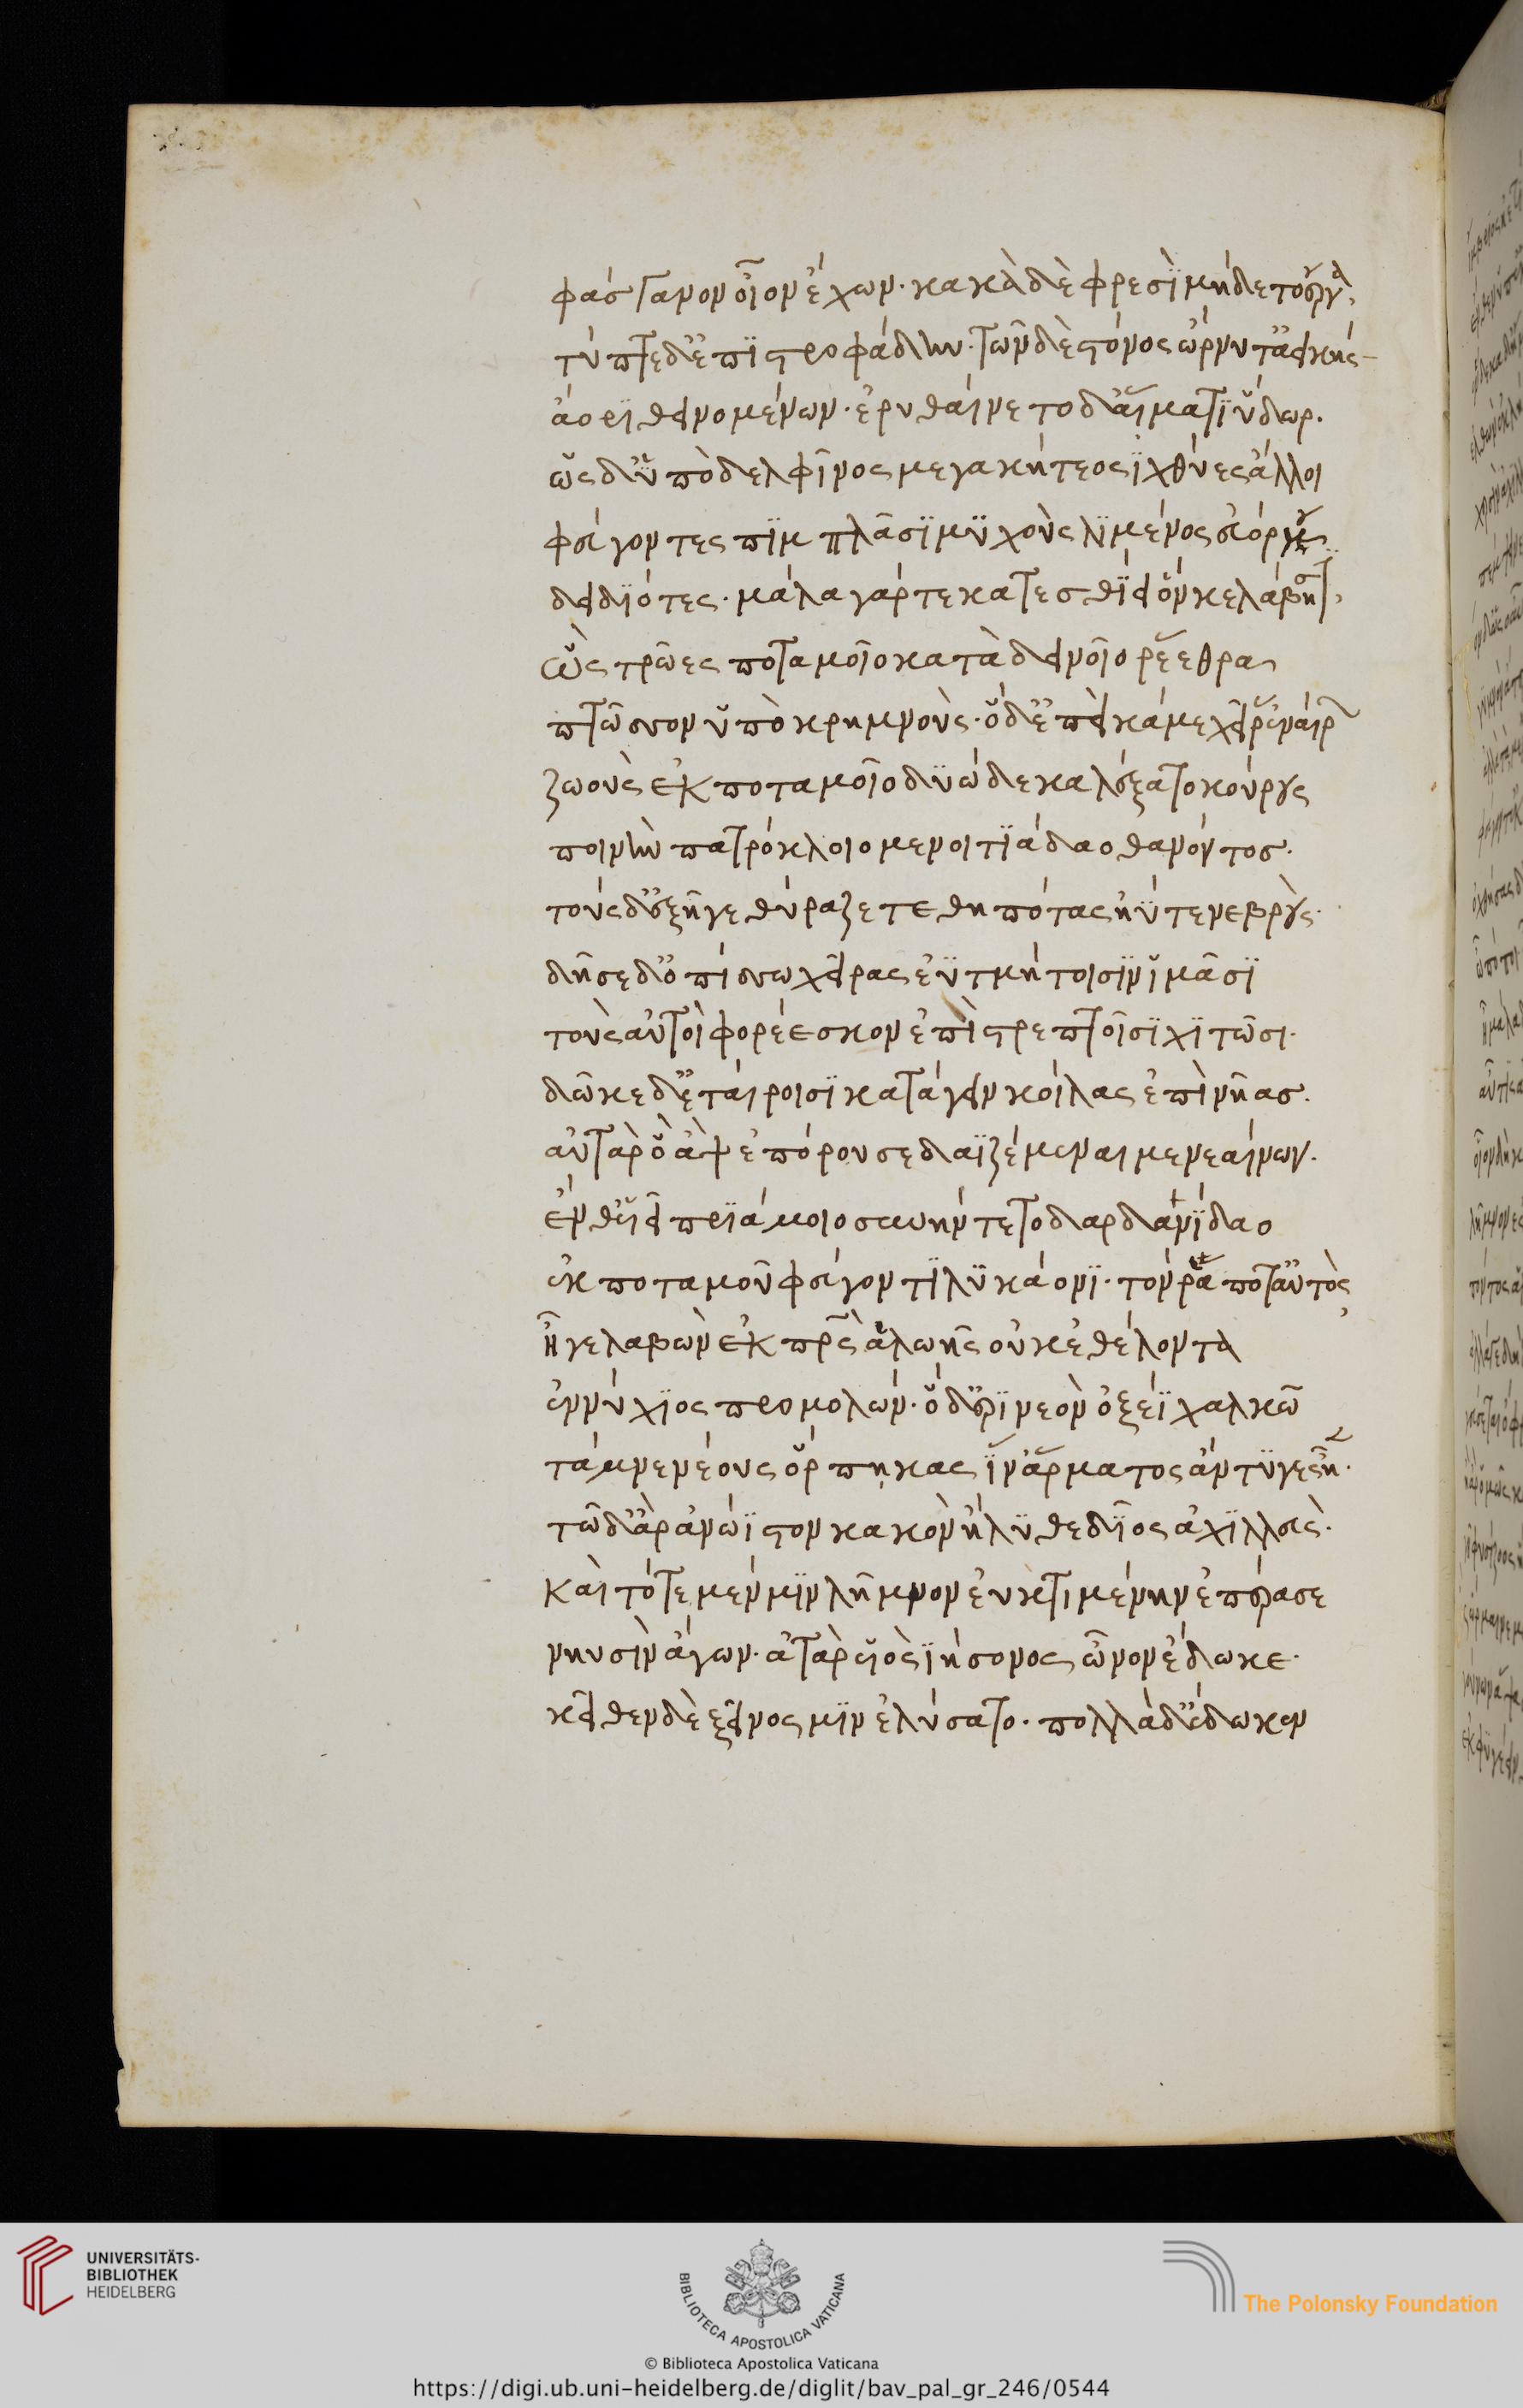 φάσγανον οἶον ἔχων· κακὰ δὲ φρεσὶ μήδετο ἔργα,
τύπτε δ' ἐπιστροφάδην· τῶν δὲ στόνος ὤρνυτ' ἀεικὴς
ἄορι θεινομένων· ἐρυθαίνετο δ' αἵματι ὕδωρ.
ὡς δ' ὑπὸ δελφῖνος μεγακήτεος ἰχθύες ἄλλοι
φεύγοντες πιμπλᾶσι μυχοὺς λιμένος εὐόρμου
δειδιότες· μάλα γάρ τε κατεσθίει ὅν κε λάβησι,
ὣς τρῶες ποταμοῖο κατὰ δεινοῖο ῥέεθρα
πτῶσσον ὑπὸ κρημνούς· ὁ δ' ἐπεὶ κάμε χεῖρας ἐναίρων
ζωοὺς ἐκ ποταμοῖο δυώδεκα λέξατο κούρους
ποινὴν πατρόκλοιο μενοιτιάδαο θανόντος.
τοὺς δ' ἐξῆγε θύραζε τεθηπότας ἠΰτε νεβρούς·
δῆσε δ' ὀπίσσω χεῖρας ἐϋτμήτοισιν ἱμᾶσι
τοὺς αὐτοὶ φορέεσκον ἐπὶ στρεπτοῖσι χιτῶσι·
δῶκε δ' ἑταίροισι κατάγειν κοίλας ἐπὶ νῆας.
αὐτὰρ ὃ ἂψ ἐπόρουσε δαϊζέμεναι μενεαίνων.
ἔνθ' υἷϊ πριάμοιο συνήντετο δαρδανίδαο
ἐκ ποταμοῦ φεύγοντι λυκάονι· τόν ῥά ποτ' αὐτὸς
ἦγε λαβὼν ἐκ πρς ἀλωῆς οὐκ ἐθέλοντα
ἐννύχιος προμολών· ὁ δ' ἐρινεὸν ὀξέϊ χαλκῶ
τάμνε νέους ὅρπηκας ἵν' ἅρματος ἄντυγες εἶεν·
τῶ δ' ἄρ' ἀνώϊστον κακὸν ἤλυθε δῖος ἀχιλλεὺς·
καὶ τότε μέν μιν λῆμνον ἐϋκτιμένην ἐπέρασε
νηυσὶν ἄγων· ἀτὰρ υἱὸς ἰήσονος ὦνον ἔδωκε·
κεῖθεν δὲ ξεῖνος μιν ἐλύσατο· πολλὰ δ' ἔδωκεν
UNIVERSITÄTS-
BIBLIOTHEK
HEIDELBERG
BIBLIOTECA APOSTOLICA VATICANA
The Polonsky Foundation
© Biblioteca Apostolica Vaticana
https://digi.ub.uni-heidelberg.de/diglit/bav_pal_gr_246/0544